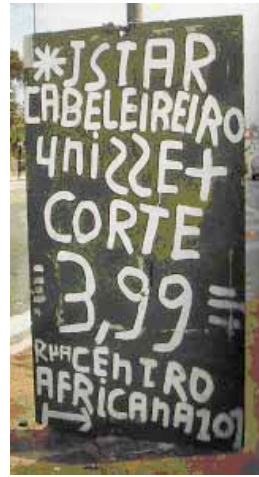 *JSTAR
CABELEIREIRO
UNISSE+
CORTE
3,99
RUA CENTRO
AFRICANA 101